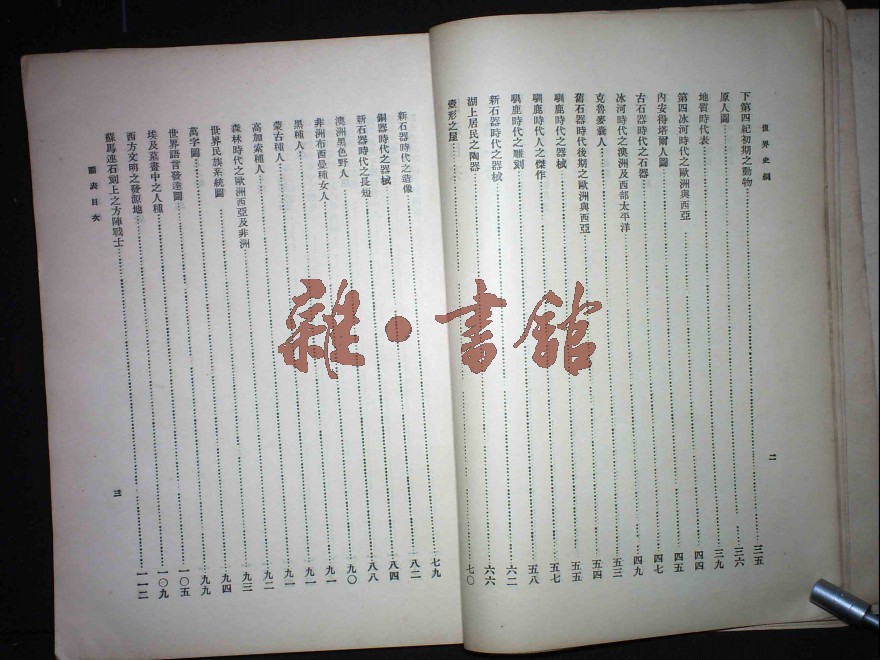 世界史綱
下第四紀初期之動物 三五
原人圖 三六
地質時代表 三九
第四冰河時代之歐洲與西亞 四四
內安得塔爾人圖 四五
古石器時代之石器 四七
冰河時代之澳洲及西部太平洋 四九
克魯麥囊人 五三
舊石器時代後期之歐洲與西亞 五四
馴鹿時代之器械 五五
馴鹿時代人之傑作 五七
馴鹿時代之雕刻 五八
新石器時代之器械 六二
湖上居民之陶器 六六
壺形之屋 七〇
二
新石器時代之造像 七九
銅器時代之器械 八二
新石器時代之長短 八四
澳洲黑色野人 八八
非洲布西曼種女人 九〇
黑種人 九一
蒙古種人 九一
高加索種人 九一
森林時代之歐洲西亞及非洲 九二
世界民族系統圖 九三
萬字圖 九四
世界語言發達圖 九九
埃及墓畫中之人種 一〇五
西方文明之發源地 一〇九
蘇馬連石刻上之方陣戰士 一一二
圖表目次
三
雜·書館